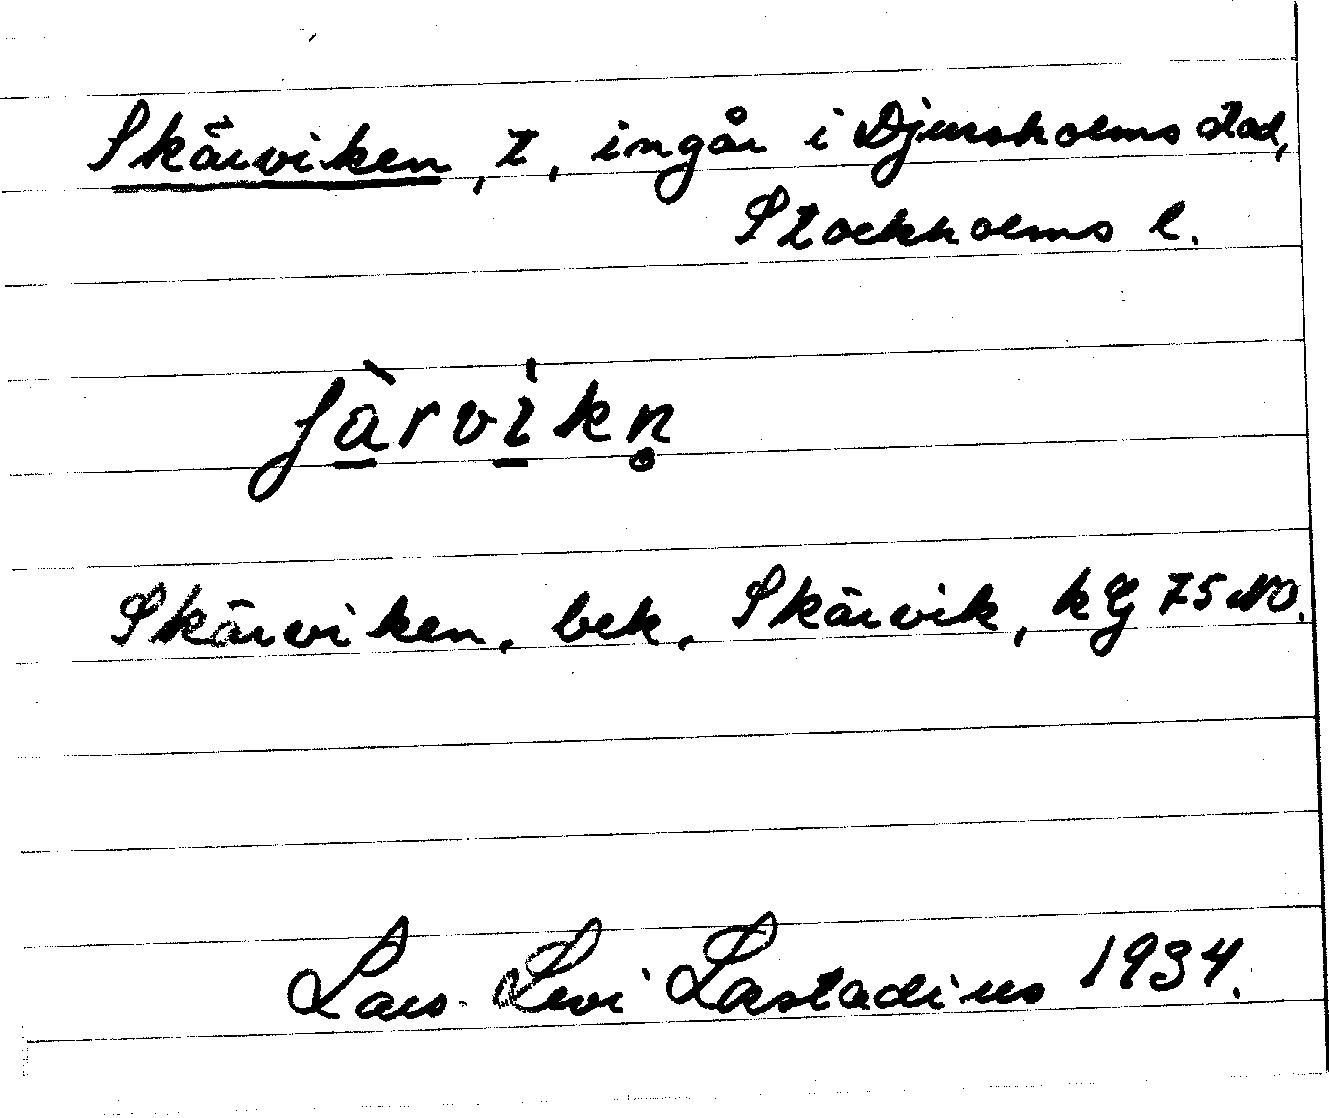 Skärviken, t, ingår i Djursholms stad,
Stockholms l.
ʃä̀rvikn̥
Skärviken, bek. Skärvik, kG 75 NO.
Lars-Levi Læstadius 1934.